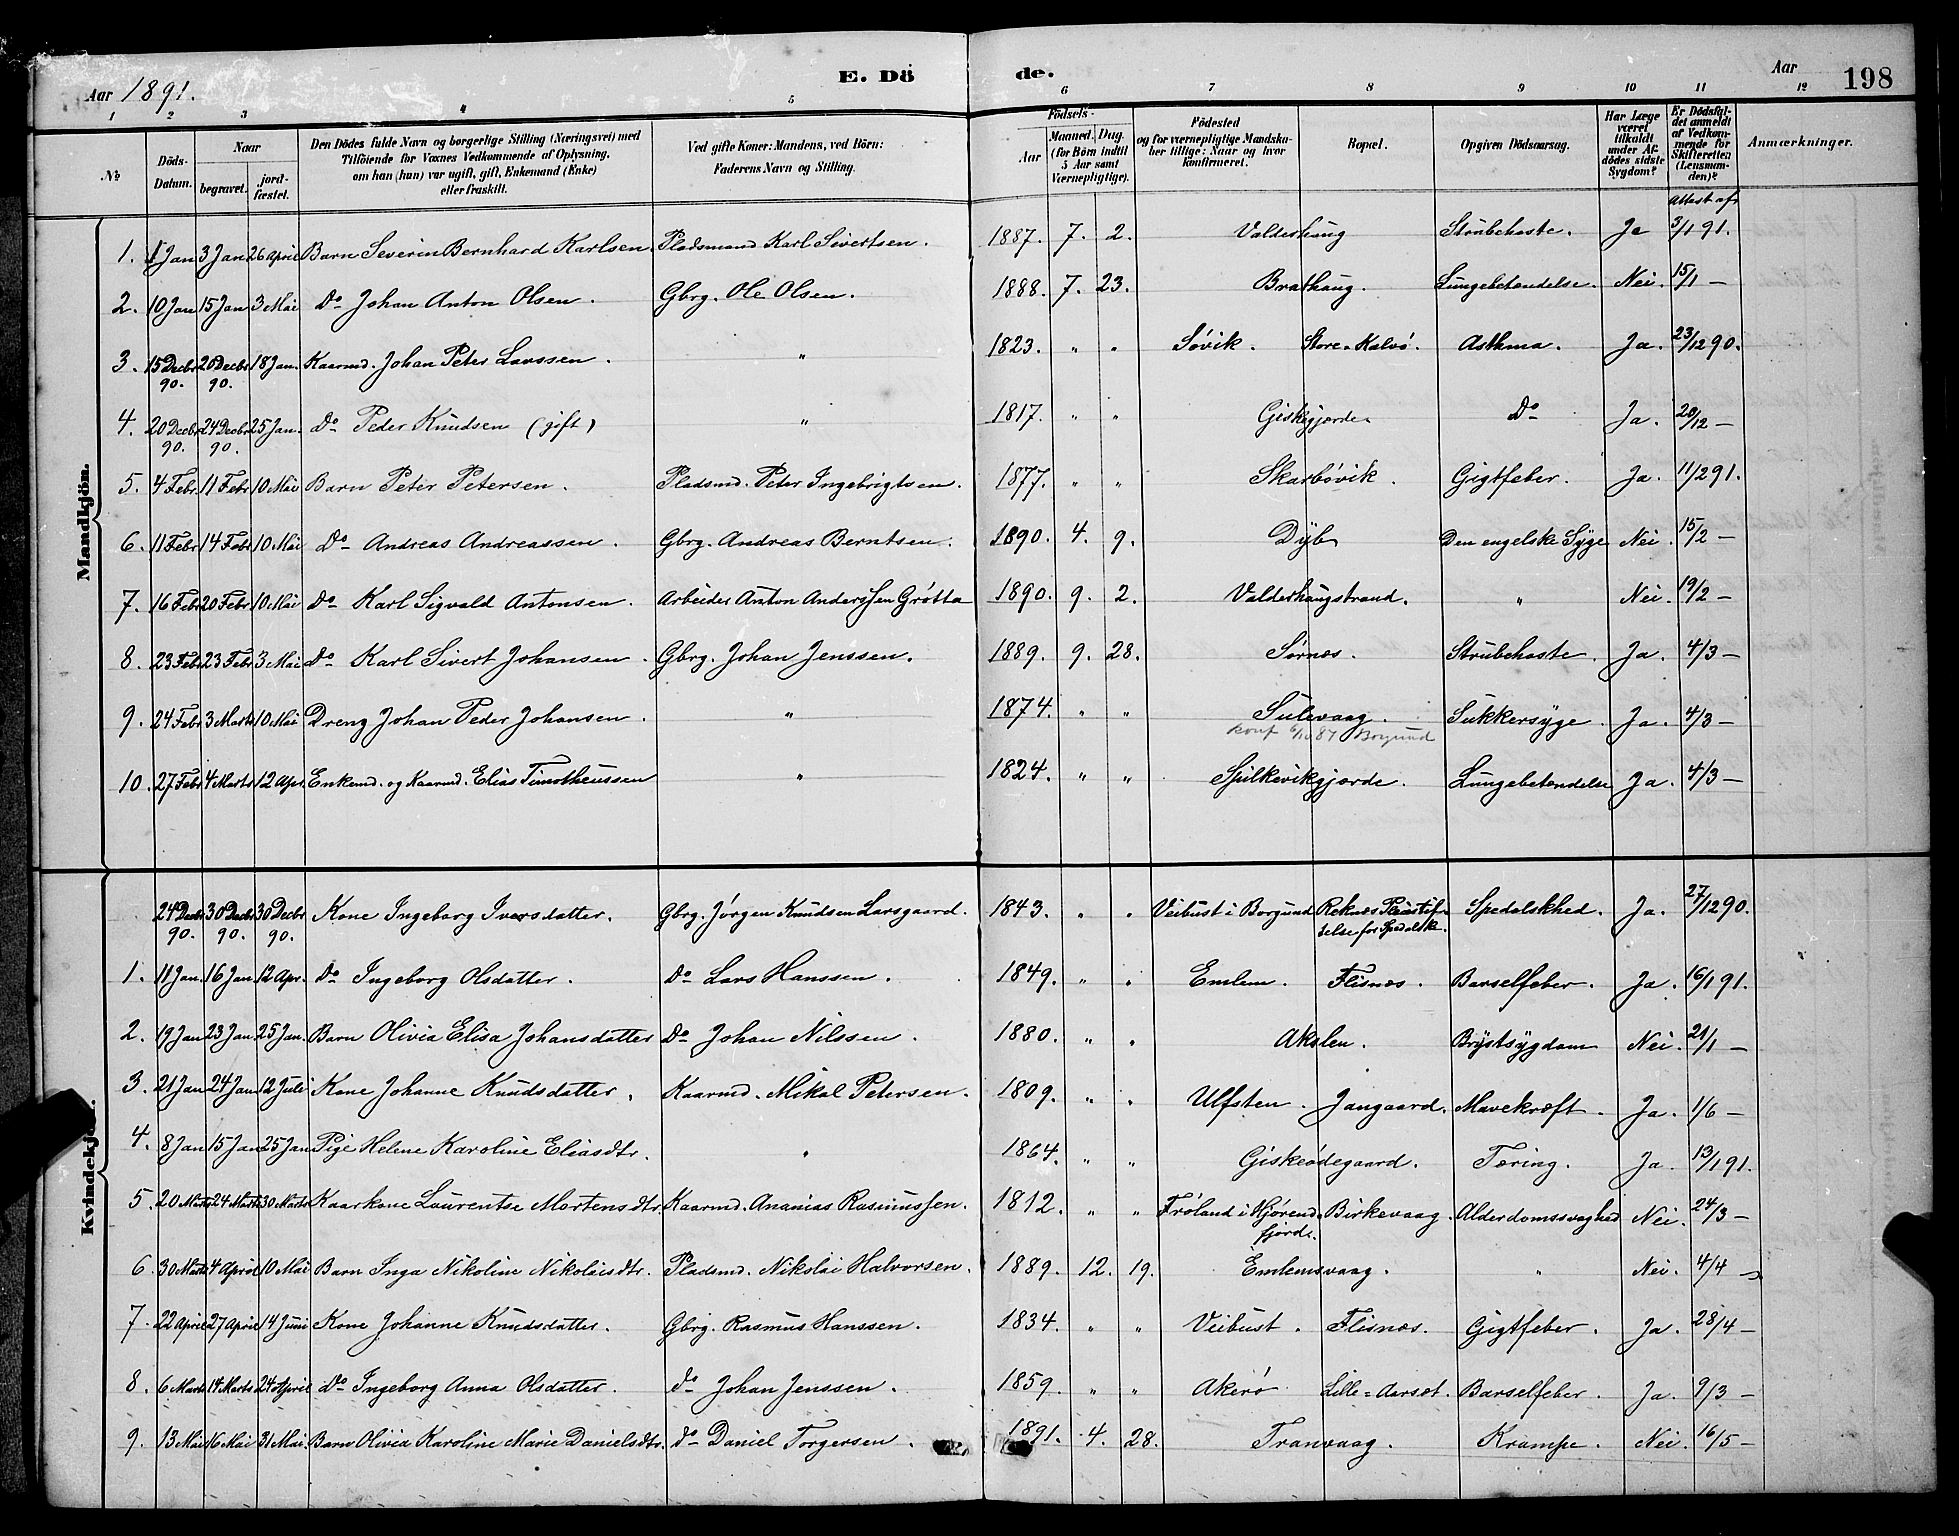 Aar 1891. E. Dö de. Aar 198
1 2 3 4 5 6 7 8 9 10 11 12
№ Döds-Datum. Naar begravet. jordfæstet. Den Dödes fulde Navn og borgerlige Stilling (Næringsvei) med Tilföiende for Voxnes Vedkommende af Oplysning, om han (hun) var ugift, gift, Enkemand (Enke) eller fraskilt. Ved gifte Koner: Mandens, ved Börn: Faderens Navn og Stilling. Födsels- Aar Maaned. Dag. (for Börn indtil 5 Aar samt Værnepligtige). Födested og for værnepligtige Mandskaber tillige: Naar og hvor konfirmeret. Bopæl. Opgiven Dödsaarsag. Har Læge været tilkaldt under Afdödes sidste Sygdom? Er Dödsfaldet anmeldt af Vedkommende for Skifteretten (Lensmanden)? Anmærkninger.
Attest af
Mandkjön.
1. 1 Jan 3 Jan 26 April Barn Severin Bernhard Karlsen. Pladsmand Karl Sivertsen. 1887. 7. 2. Valderhaug Strubehoste. Ja 3/1 91.
2. 10 Jan 15 Jan 3 Mai Do Johan Anton Olsen. Gbrg. Ole Olsen. 1888. 7. 23. Brathaug. Lungebetendelse. Nei. 15/1 —
3. 15 Decbr 90. 20 Decbr 90. 18 Jan. Kaarmd. Johan Peter Larssen. " 1823. " " Søvik. Store-Kalvø. Asthma. Ja. 23/12 90.
4. 20 Decbr 90. 24 Decbr 90. 25 Jan. Do Peder Knudsen (gift) " 1817. " " Giskegjerde. Do Ja. 20/12 —
5. 4 Febr 11 Febr 10 Mai Barn Peter Petersen. Pladsmd. Peter Ingebrigtsen. 1877. " " Skarbøvik. Gigtfeber. Ja. 11/2 91.
6. 11 Febr 14 Febr 10 Mai Do Andreas Andreassen. Gbrg. Andreas Berntsen. 1890. 4. 9. Dyb Den engelske Syge Nei. 15/2 —
7. 16 Febr 20 Febr 10 Mai Do Karl Sigvald Antonsen. Arbeider Anton Anderssen Grøtta 1890. 9. 2. Valderhaugstrand. " Nei. 19/2 —
8. 23 Febr 23 Febr 3 Mai Do Karl Sivert Johansen. Gbrg. Johan Jenssen. 1889. 9. 28. Sørnes. Strubehoste. Ja. 4/3 —
9. 24 Febr 3 Marts 10 Mai Dreng Johan Peder Johansen. " 1874. " " Sulevaag. Sukkersyge. Ja. 4/3 —
Konf Borgund
10. 27 Febr 4 Marts 12 Apr. Enkemd. og Kaarmd. Elias Timotheussen " 1824. " " Spilkevikgjerde. Lungebetendelse Ja. 4/3 —
Kvindekjön.
24 Decbr 90. 30 Decbr 90. 30 Decbr 90. Kone Ingeborg Iversdatter. Gbrg. Jørgen Knudsen Larsgaard. 1843. " " Veibust i Borgund Reknæs Pleiestiftelse for Spedalske. Spedalskhed. Ja. 27/12 90.
1. 11 Jan. 16 Jan. 12 Apr. Do Ingeborg Olsdatter. Do Lars Hanssen. 1849. " " Emlem. Flisnæs. Barselfeber. Ja. 16/1 91.
2. 19 Jan 23 Jan. 25 Jan. Barn Olivia Elisa Johansdatter Do Johan Nilssen. 1880. " " Akslen. Brystsygdom Nei. 21/1 —
3. 21 Jan 24 Jan 12 Juli Kone Johanne Knudsdatter. Kaarmd. Mikal Petersen. 1809. " " Ulfsten. Jangaard. Mavekræft. Ja. 1/6 —
4. 8 Jan 15 Jan 25 Jan Pige Helene Karoline Eliasdtr. " 1864. " " Giskeødegaard. Tæring. Ja. 13/1 91.
5. 20 Marts 24 Marts 30 Marts Kaarkone Laurentse Mortensdtr. Kaarmd. Ananias Rasmussen. 1812. " " Frøland i Hjørendfjord. Birkevaag. Alderdomssvaghed Nei. 24/3 —
6. 30 Marts 4 April 10 Mai Barn Inga Nikoline Nikolaisdtr. Pladsmd. Nikolai Halvorsen. 1889. 12. 19. Emlemsvaag. " Nei. 4/4 —
7. 22 April 27 April 14 Juni Kone Johanne Knudsdatter. Gbrg. Rasmus Hanssen. 1834. " " Veibust. Flisnæs. Gigtfeber. Ja. 28/4 —
8. 6 Marts 14 Marts 24 April do Ingeborg Anna Olsdatter. do Johan Jenssen. 1859. " " Akerø Lille-Aarsæt. Barselfeber. Ja. 9/3 —
9. 13 Mai 16 Mai 31 Mai. Barn Olivia Karoline Marie Danielsdtr. do Daniel Torgersen. 1891. 4. 28. Tranvaag. Krampe. Nei. 16/5 —